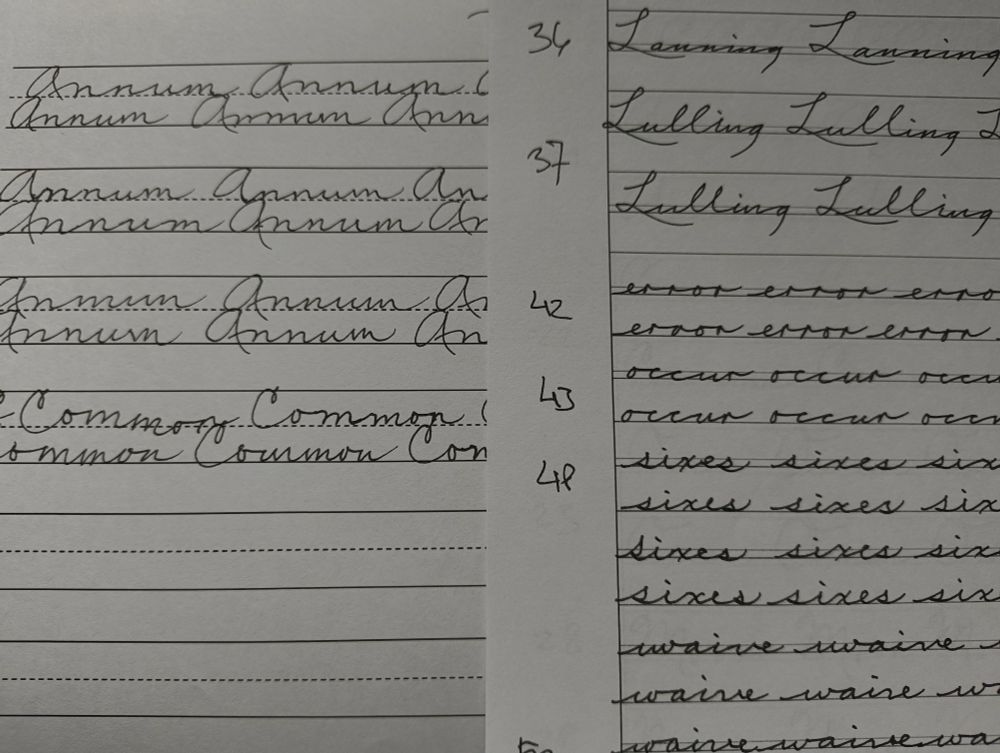 Annum Annum C
Annum Ammum Ann
Annum Annum An
Annum Annum An
Anmum Annum An
Annum Annum An
Common Common C
ommon Common Com
36
Lanning Lanning
Lulling Lulling L
37
Lulling Lulling
42
error error erro
error error error
43
occur occur occu
occur occur occu
48
sixes sixes six
sixes sixes six
sixes sixes six
sixes sixes six
waive waive
waive waive wa
waive waive wa